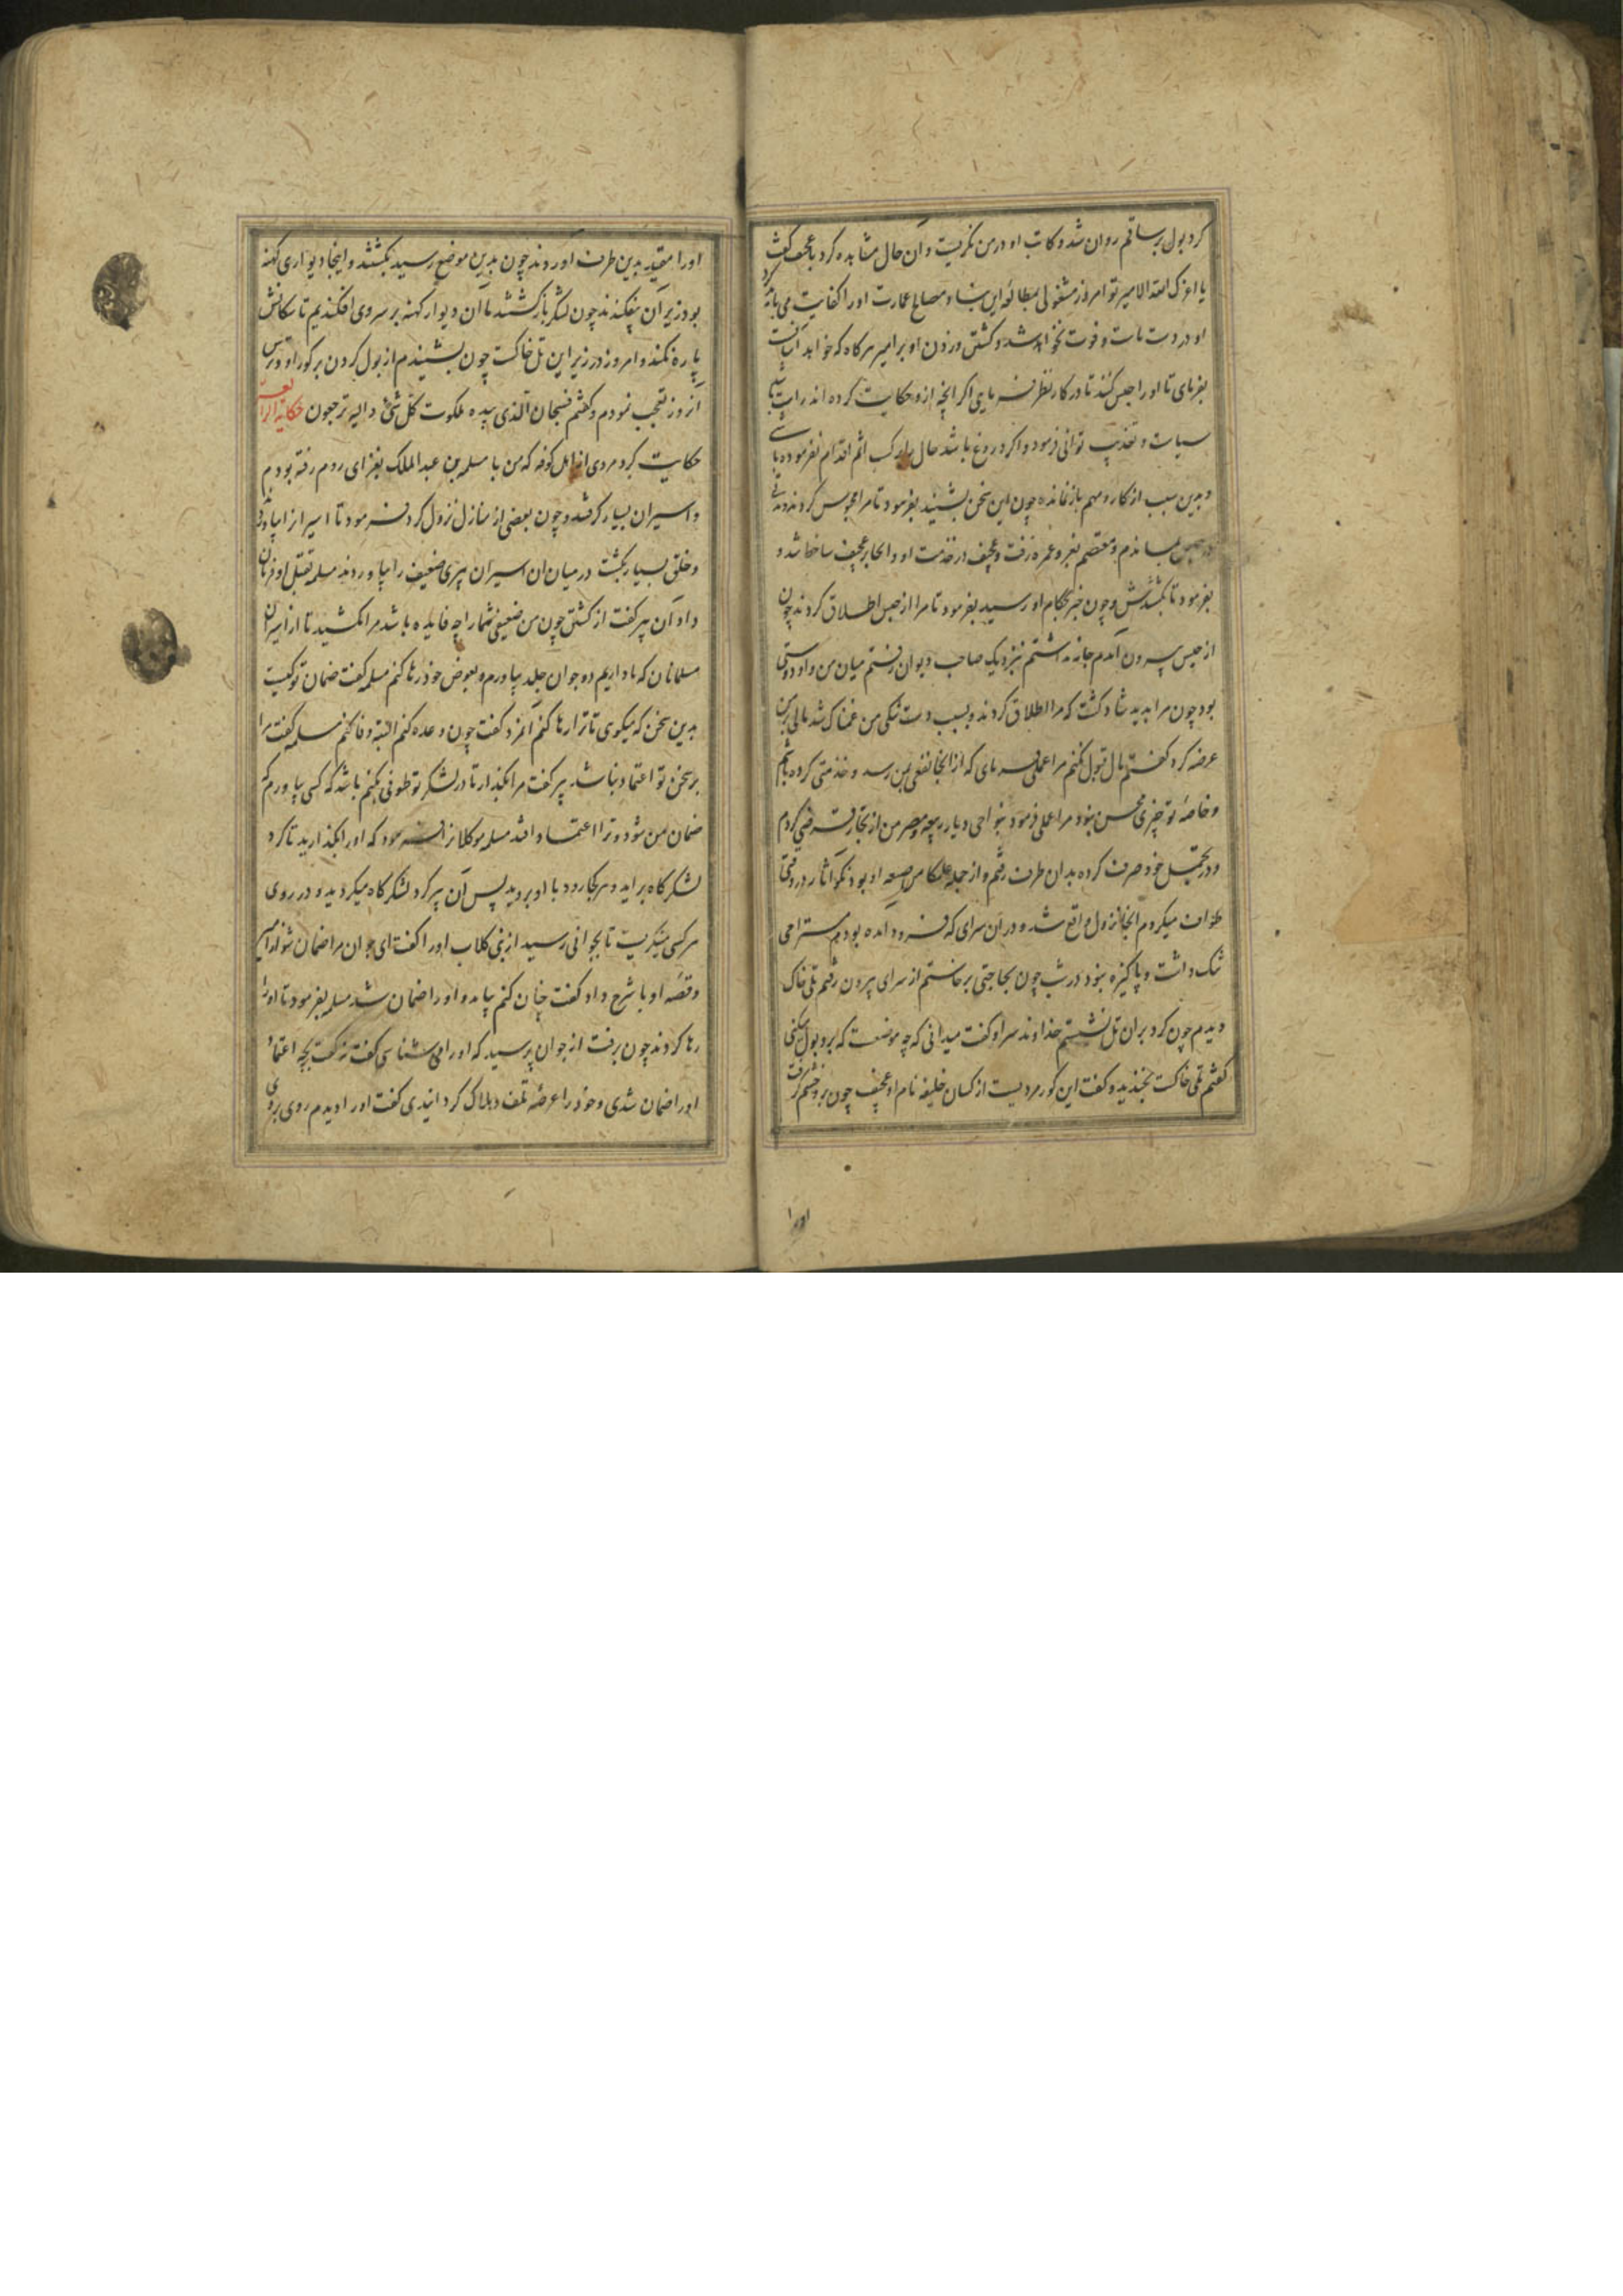 کرد بول بر ساقم روان شد و کاتب او در من نگریست و آن حال مشاهده کرد با عجیف گفت
یا اعزک الله الامیر تو امروز مشغولی بمطالعه این بنا و مصالح عمارت او را کفایت می باید کرد
او در دست تست و فوت نخواهد شد و کشتن و زدن او بر امیر هرکاه که خواهد آسانست
بفرمای تا او را حبس کنند تا در کار نظر فرمایی اکر آنچه ازو حکایت کرده اند راست باشد
سیاست و تعذیب توانی فرمود و اکر دروغ باشد حالی بارکب اثم اقدام نفرموده باشی
و بدین سبب از کار و مهم بازنمانده چون این سخن بشنید بفرمود تا مرا محبوس کردند و مدتی
در حبس بماندم و معتصم بغزو عمره رفت و عجیف در خدمت او و آنجا بر عجیف ساخط شد و
بفرمود تا بکشندش و چون خبر بحکام او رسید بفرمود تا مرا از حبس اطلاق کردند چون
از حبس بیرون آمدم جامه نداشتم نزدیک صاحب دیوان رفتم میان من و او دوستی
بود چون مرا بدید شاد کشت که مرا اطلاق کردند و بسبب دست تنکی من غمناک شد مالی بر من
عرضه کرد کفتم مال قبول نکنم مرا عملی فرمای که از آنجا نفعی بمن رسد و خدمتی کرده باشم
و خاصهٔ تو چیزی محسن بود مرا عملی فرمود بنواحی دیار ربیعه و مصر من از تجار قرضی کردم
و در تجمل خود صرف کرده بدان طرف رفتم و از جمله عملکا من ضیعه او بود نکو آثار و در وقتی
طواف میکردم آنجا نزول واقع شد و در آن سرای که فرود آمده بودم مستراحی
تنک داشت و پاکیزه نبود در شب چون بحاجتی برخاستم از سرای بیرون رفتم تلی خاک
دیدم چون کرد بران تل نشستم خداوند سرا و کفت میدانی که چه موضعست که برو بول میکنی
کفتم تلی خاکست بخندید و کفت این کور مردیست از کسان خلیفه نام او عجیف چون برو خشم کرفت
او را
او را مقید بدین طرف آوردند چون بدین موضع رسید بکشتند و اینجا دیواری کهنه
بود زیر آن بیفکندند چون لشکر بازکشتند ما آن دیوار کهنه بر سر وی افکندیم تا سکانش
پاره نکنند و امروز در زیر این تل خاکست چون بشنیدم از بول کردن بر کور او و ترس
آنروز تعجب نمودم و کفتم فسبحان الذی بیده ملکوت کل شئ و الیه ترجعون حکایة الرابعه
حکایت کرد مردی از اهل کوفه که من با مسلمه بن عبد الملک بغزای روم رفته بودم
و اسیران بسیار کرفتند و چون ببعضی از منازل نزول کرد فرمود تا اسیران را بیاوردند
و خلقی بسیار بکشت در میان آن اسیران پیری ضعیف را بیاوردند مسلمه بقتل او فرمان
داد آن پیر کفت از کشتن چون من ضعیفی شما را چه فایده باشد مرا مکشید تا از اسیران
مسلمانان که ما داریم دو جوان جلد بیاورم و بعوض خود رها کنم مسلمه کفت ضمان تو کیست
بدین سخن که میکوی تا ترا رها کنم آنمرد کفت چون وعده کنم البته وفا کنم مسلمه کفت مرا
بر سخن تو اعتماد نباشد پیر کفت مرا بکذار تا در لشکر تو طوفی کنم باشد که کسی بیاورم که
ضمان من شود و ترا اعتماد افتد مسلمه موکلان را فرمود که او را بکذارید تا کرد
لشکرکاه برآید و هرکجا رود با او بروید پس آن پیر کرد لشکرکاه میکردید و در روی
هرکس مینکریست تا بجوانی رسید از بنی کلاب او را کفت ای جوان مرا ضمان شو از امیر
و قصه او با شرح داد کفت چنان کنم بیامد و او را ضمان شد مسلمه بفرمود تا او را
رها کردند چون برفت از جوان پرسید که او را می شناسی کفت نه کفت بچه اعتماد
او را ضمان شدی و خود را عرضهٔ تلف و هلاک کردانیدی کفت او را دیدم روی بروی